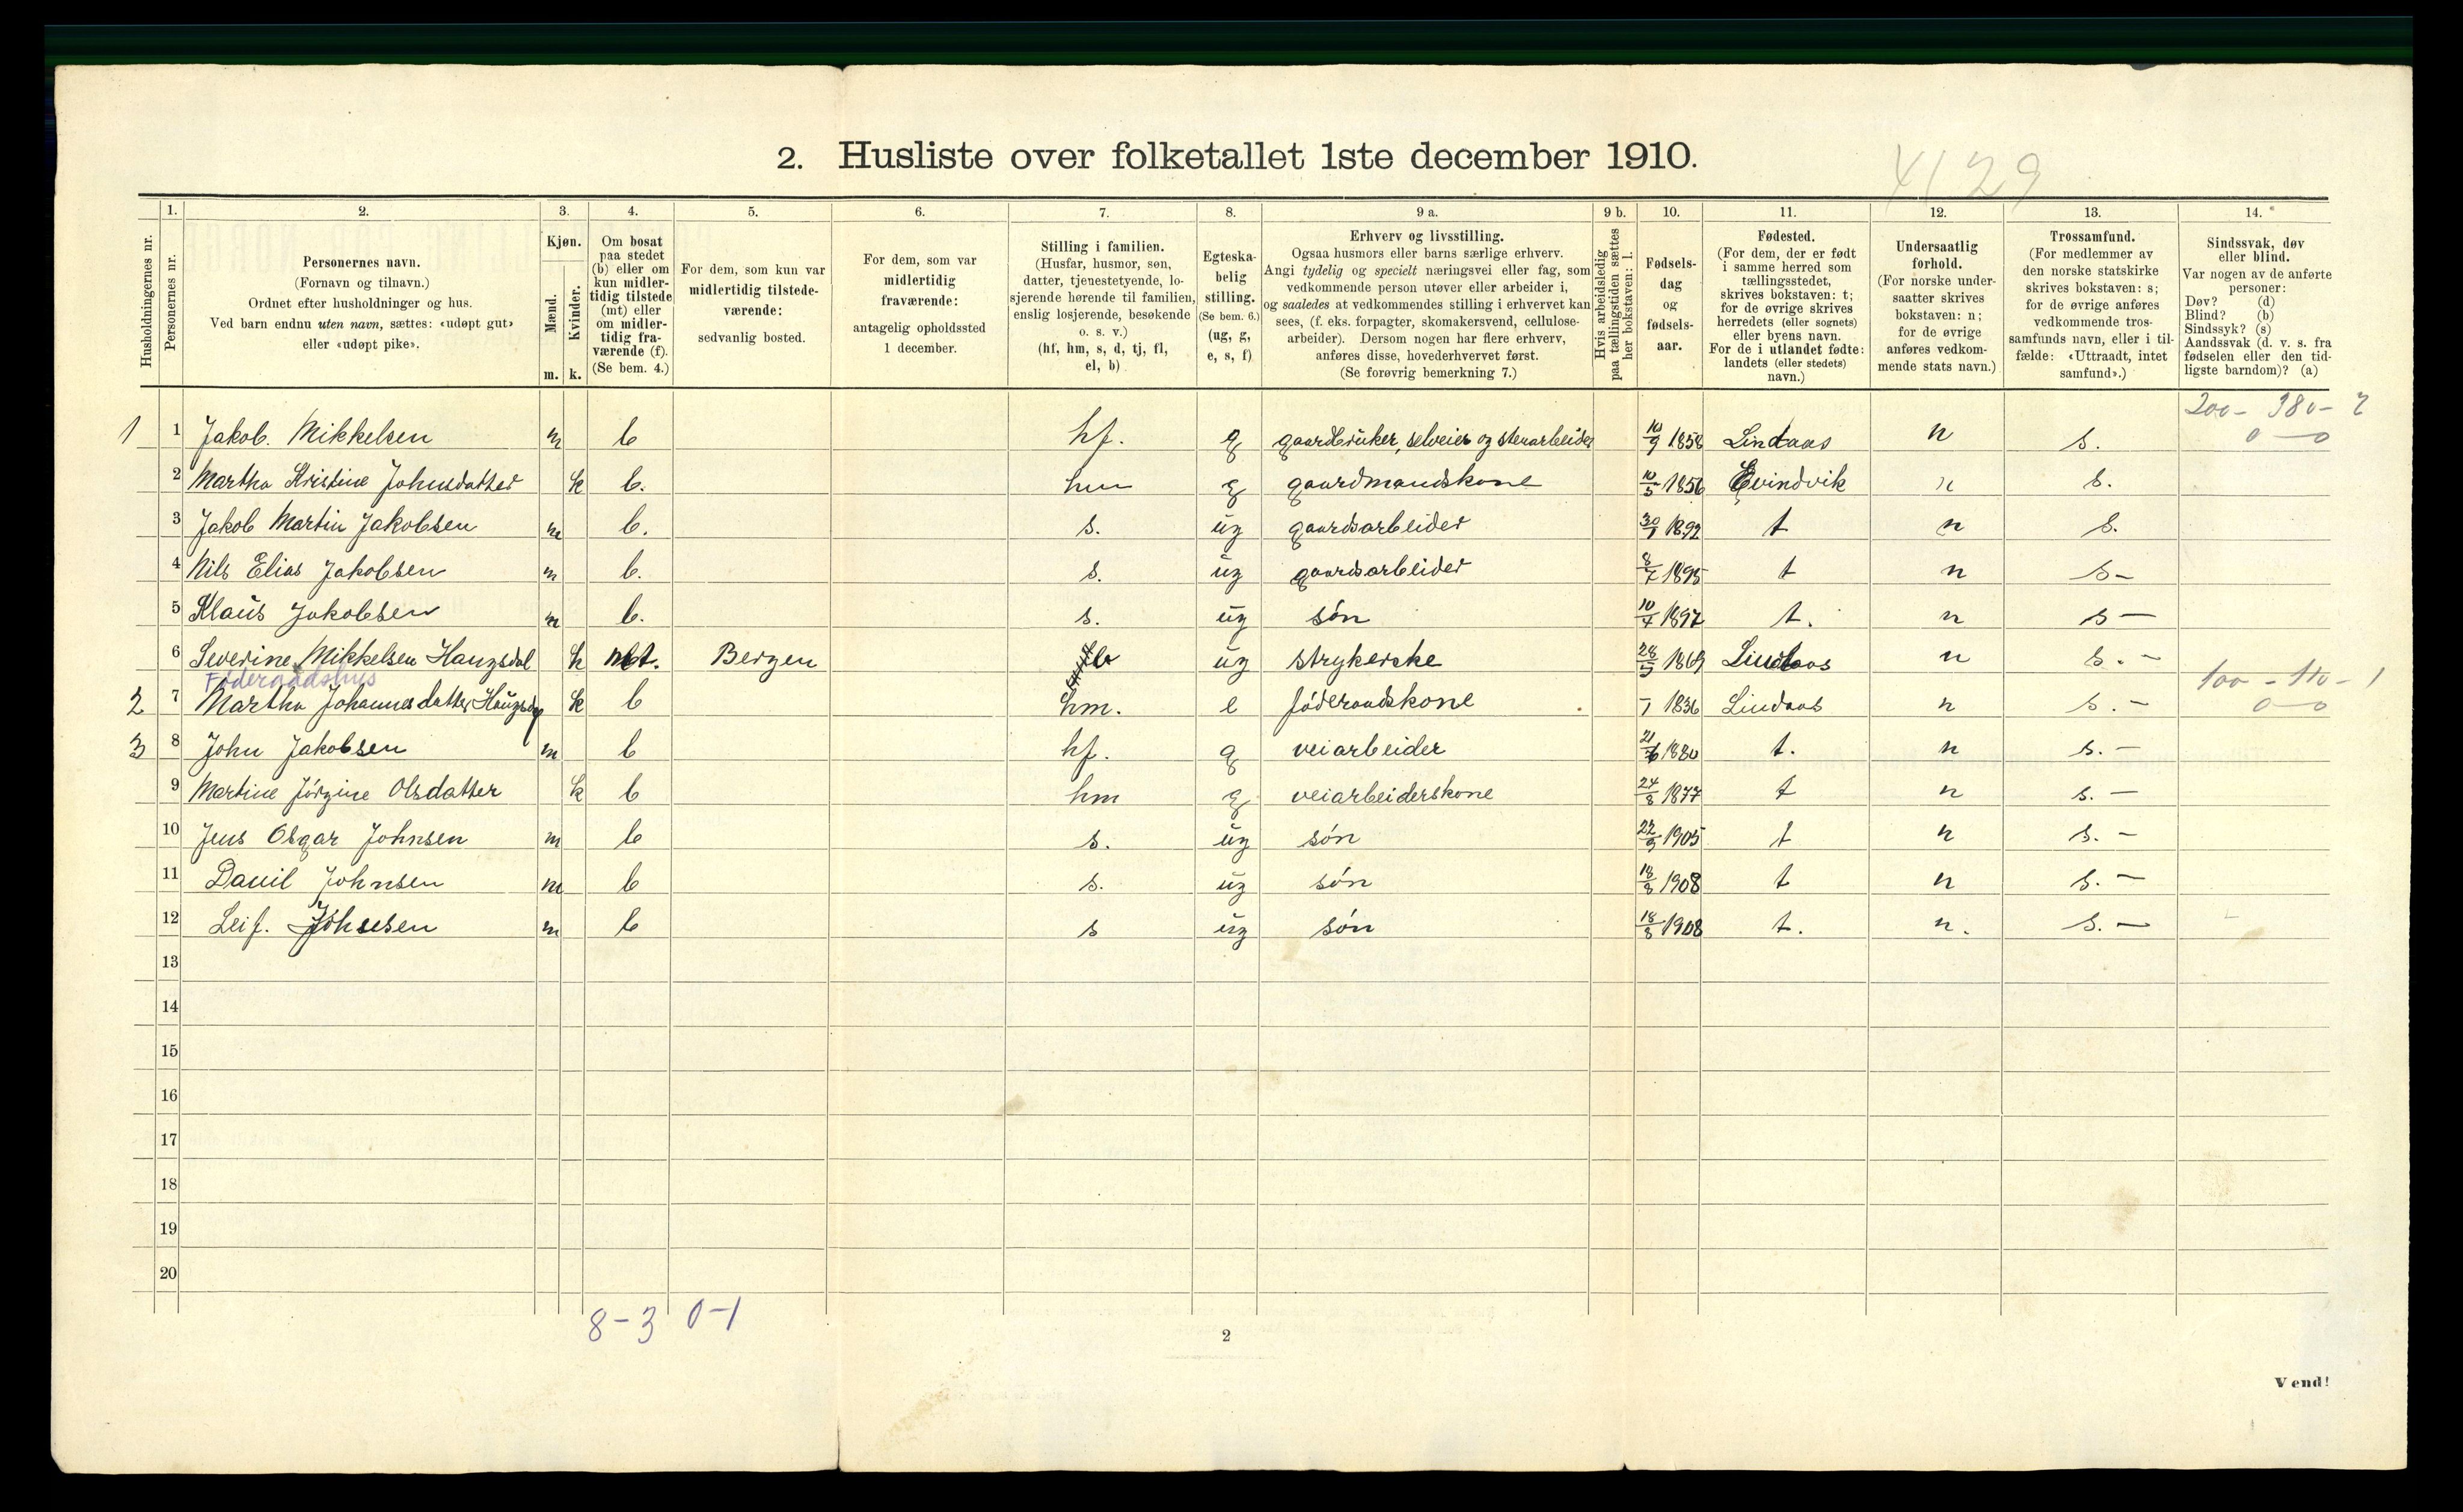 2. Husliste over folketallet 1ste december 1910.
4129
Husholdningernes nr.
1. Personernes nr.
2. Personernes navn.
(Fornavn og tilnavn.)
Ordnet efter husholdninger og hus.
Ved barn endnu uten navn, sættes: «udøpt gut»
eller «udøpt pike».
3. Kjøn.
Mænd. Kvinder.
m. k.
4. Om bosat
paa stedet
(b) eller om
kun midler-
tidig tilstede
(mt) eller
om midler-
tidig fra-
værende (f).
(Se bem. 4.)
5. For dem, som kun var
midlertidig tilstede-
værende:
sedvanlig bosted.
6. For dem, som var
midlertidig
fraværende:
antagelig opholdssted
1 december.
7. Stilling i familien.
(Husfar, husmor, søn,
datter, tjenestetyende, lo-
sjerende hørende til familien,
enslig losjerende, besøkende
o. s. v.)
(hf, hm, s, d, tj, fl,
el, b)
8. Egteska-
belig
stilling.
(Se bem. 6.)
(ug, g,
e, s, f)
9 a. Erhverv og livsstilling.
Ogsaa husmors eller barns særlige erhverv.
Angi tydelig og specielt næringsvei eller fag, som
vedkommende person utøver eller arbeider i,
og saaledes at vedkommendes stilling i erhvervet kan
sees, (f. eks. forpagter, skomakersvend, cellulose-
arbeider). Dersom nogen har flere erhverv,
anføres disse, hovederhvervet først.
(Se forøvrig bemerkning 7.)
9 b. Hvis arbeidsledig
paa tællingstiden sættes
her bokstaven: l.
10. Fødsels-
dag
og
fødsels-
aar.
11. Fødested.
(For dem, der er født
i samme herred som
tællingsstedet,
skrives bokstaven: t;
for de øvrige skrives
herredets (eller sognets)
eller byens navn.
For de i utlandet fødte:
landets (eller stedets)
navn.)
12. Undersaatlig
forhold.
(For norske under-
saatter skrives
bokstaven: n;
for de øvrige
anføres vedkom-
mende stats navn.)
13. Trossamfund.
(For medlemmer av
den norske statskirke
skrives bokstaven: s;
for de øvrige anføres
vedkommende tros-
samfunds navn, eller i til-
fælde: «Uttraadt, intet
samfund».)
14. Sindssvak, døv
eller blind.
Var nogen av de anførte
personer:
Døv? (d)
Blind? (b)
Sindssyk? (s)
Aandssvak (d. v. s. fra
fødselen eller den tid-
ligste barndom)? (a)
200 - 380 - 2
0 — 0
1 1 Jakob. Mikkelsen m b hf. g gaardbruker, selveier og stenarbeider 10/9 1858 Lindaas n s.
2 Martha Kristine Johnsdatter k b. hm g gaardmandskone 10/5 1856 Evindvik n s.
3 Jakob Martin Jakobsen m b. s. ug gaardsarbeider 1892 t n s.
4 Nils Elias Jakobsen m b. s. ug gaardsarbeider 8/7 1895 t n s-
5 Klaus Jakobsen m b. s. ug søn 10/7 1897 t. n s —
6 Severine Mikkelsen Haugsdal k mt. Bergen b ug strykerske 28/5 1869 Lindaas n s. -
Føderaadshus
100 - 110 - 1
0 — 0
2 7 Martha Johannesdatter Haugsdal k b hm. e føderaadskone 1836 Lindaas n s. -
3 8 John Jakobsen m b hf. g veiarbeider 21/6 1880 t. n s. —
9 Martine Jørgine Olsdatter k b hm g veiarbeiderskone 24/8 1877 t n s. —
10 Jens Osgar Johnsen m b s. ug søn 22/9 1905 t n s. -
11 Daniel Johnsen m b s. ug søn 18/8 1908 t n s. -
12 Leif. Johnsen m b s ug søn 18/8 1908 t. n. s. —
13
14
15
16
17
18
19
20
8 - 3 0 - 1
2
Vend!